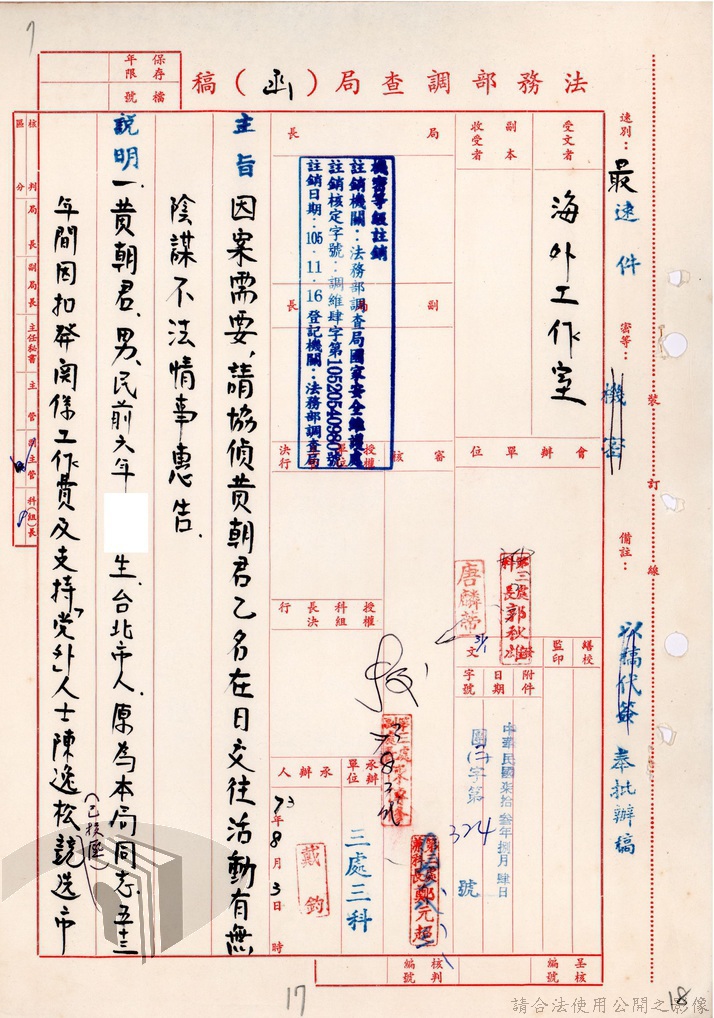 法務部調查局（函）稿
保存年限
檔號
速別：最速件
密等：機密
備註：以稿代簽 奉批辦稿
裝訂線
受文者
海外工作室
副本收受者
會辦單位
繕校
監印
附件
日期
文
字號
中華民國柒拾叁年捌月肆日
字第
324
號
第三處科長郭秋雄
唐麟
局長
副局長
審核
授權單位決行
授權科組長決行
機密等級註銷
註銷機關：法務部調查局國家安全維護處
註銷核定字號：調維肆字第10520540980號
註銷日期：105.11.16登記機關：法務部調查局
承辦單位
三處三科
承辦人
戴鈞
73年8月3日
時
鄭元超
主旨
因案需要，請協偵黃朝君乙名在日交往活動有無
陰謀不法情事惠告．
說明
一、黃朝君、男、民前六年
生、台北市人．原為本局同志，五十三
年間因扣發関係工作費及支持「党外」人士陳逸松競選市
核判區分
局長
副局長
主任秘書
主管
副主管
科（組）長
核判編號
呈核編號
17
18
請合法使用公開之影像